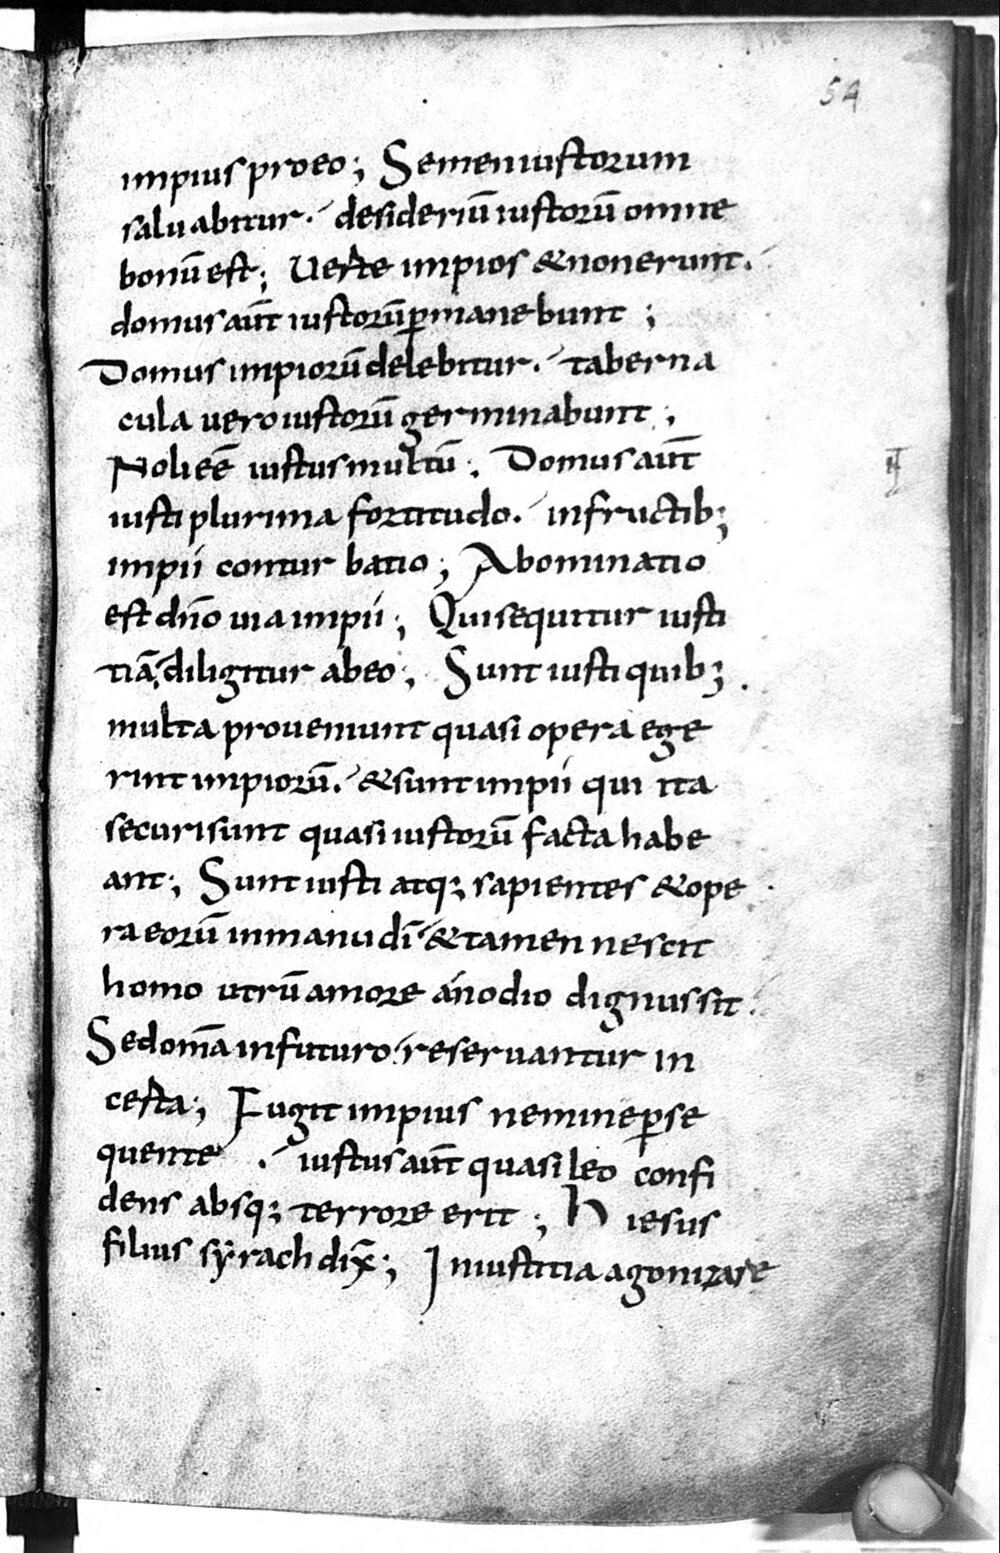 54
impius pro eo; Semen iustorum
saluabitur. desideriū iustorū omne
bonū est; Uerte impios & non erunt.
domus aūt iustorū ꝑmanebunt;
Domus impiorū delebitur. taberna
cula uero iustorū germinabunt;
Noli eē iustus multū; Domus aūt
iusti plurima fortitudo. in fructib;
impii conturbatio; Abominatio
est dn̄o uia impii; Qui sequitur iusti
tiā, diligitur ab eo; Sunt iusti quib;
multa proueniunt quasi opera ege
rint impiorū. & sunt impii qui ita
securi sunt quasi iustorū facta habe
ant; Sunt iusti atq; sapientes & ope
ra eorū in manu dī & tamen nescit
homo utrū amore án odio dignus sit.
Sed om̄a in futuro reseruantur in
certa; Fugit impius nemine ꝑse
quente. iustus aūt quasi leo confi
dens absq; terrore erit; H iesus
filius sẏrach dix̄; In iustitia agonizare